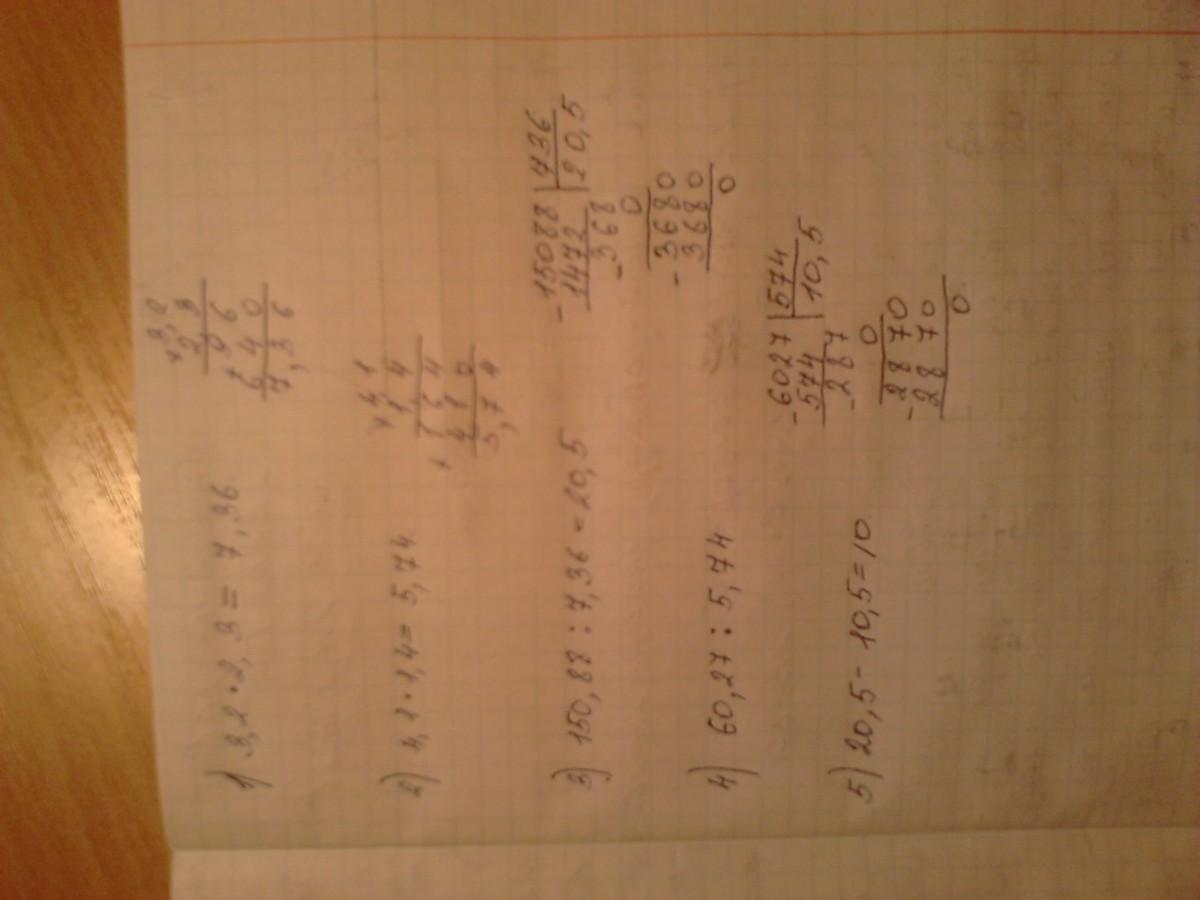 1) 3,2 · 2,3 = 7,36
× 3,2
2 3
+ 9 6
6 4 0
7, 3 6
2) 4,1 · 1,4 = 5,74
× 4 1
1 4
+ 1 6 4
4 1 0
5, 7 4
3) 150,88 : 7,36 = 20,5
- 15088 | 736
1472 | 20,5
- 368
0
- 3680
3680
0
4) 60,27 : 5,74
- 6027 | 574
574 | 10,5
- 287
0
- 2870
2870
0
5) 20,5 - 10,5 = 10